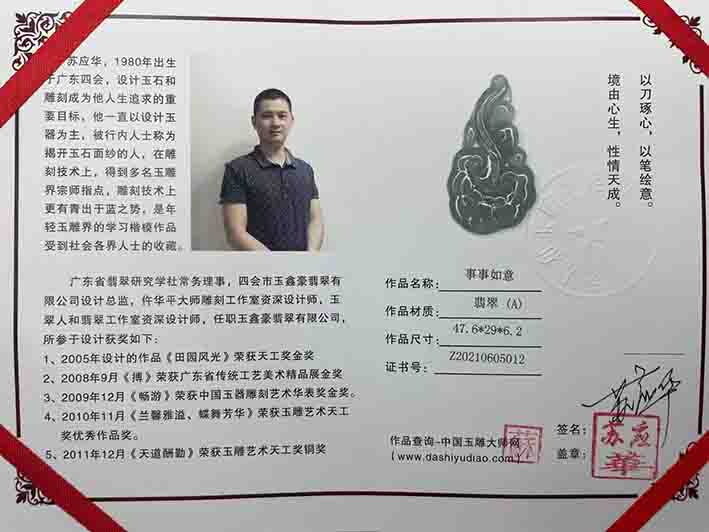 苏应华，1980年出生
于广东四会，设计玉石和
雕刻成为他人生追求的重
要目标，他一直以设计玉
器为主，被行内人士称为
揭开玉石面纱的人，在雕
刻技术上，得到多名玉雕
界宗师指点，雕刻技术上
更有青出于蓝之势，是年
轻玉雕界的学习楷模作品
受到社会各界人士的收藏。
广东省翡翠研究学社常务理事，四会市玉鑫豪翡翠有
限公司设计总监，仵华平大师雕刻工作室资深设计师，玉
翠人和翡翠工作室资深设计师，任职玉鑫豪翡翠有限公司，
所参于设计获奖如下：
1、2005年设计的作品《田园风光》荣获天工奖金奖
2、2008年9月《搏》荣获广东省传统工艺美术精品展金奖
3、2009年12月《畅游》荣获中国玉器雕刻艺术华表奖金奖。
4、2010年11月《兰馨雅溢、蝶舞芳华》荣获玉雕艺术天工
奖优秀作品奖。
5、2011年12月《天道酬勤》荣获玉雕艺术天工奖铜奖
以刀琢心，以笔绘意。
境由心生，性情天成。
作品名称：事事如意
作品材质：翡翠 (A)
作品尺寸：47.6*29*6.2
证书号：Z20210605012
作品查询-中国玉雕大师网
【www.dashiyudiao.com】
签名：苏应华
盖章：苏应华